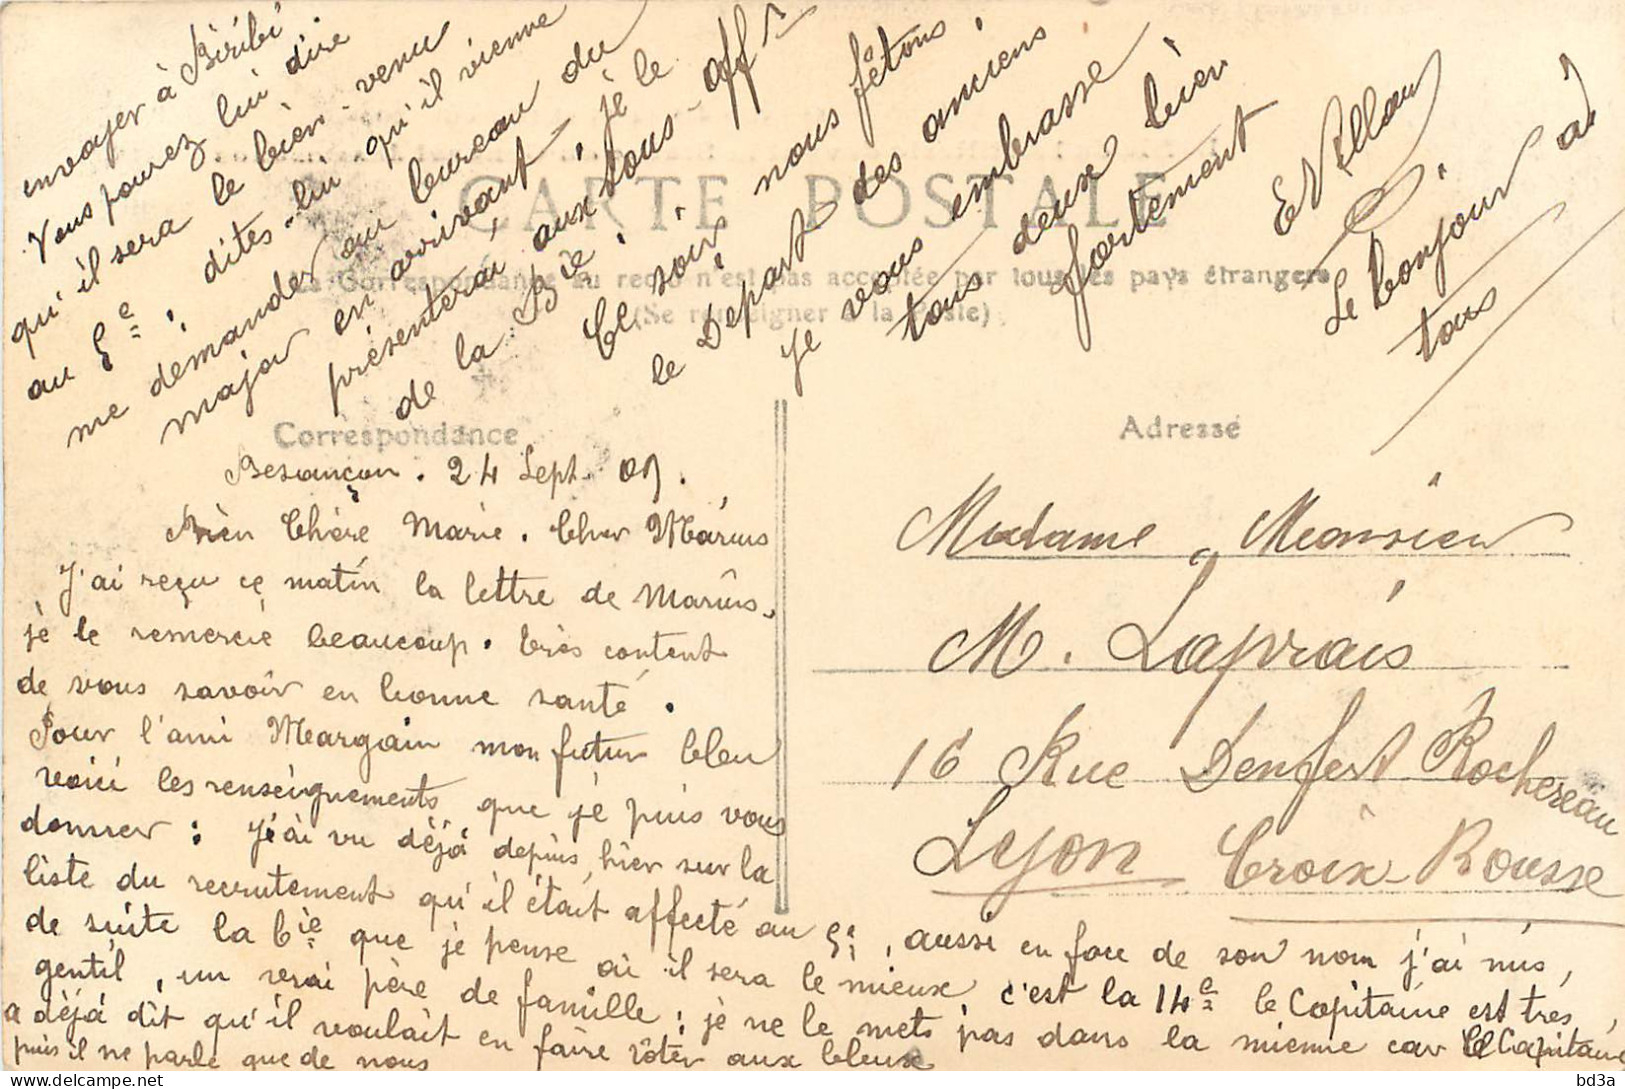 Correspondance
Besançon. 24 Sept. 09.
Bien Chère Marie. Cher Marius
J'ai reçu ce matin la lettre de Marius,
je le remercie beaucoup. très content
de vous savoir en bonne santé.
Pour l'ami Margain mon futur bleu
voici les renseignements que je puis vous
donner : J'ai vu déjà depuis hier sur la
liste du recrutement qu'il était affecté au 5e, aussi en face de son nom j'ai mis,
de suite la Cie que je pense où il sera le mieux, c'est la 14e le Capitaine est très
gentil, un vrai père de famille ; je ne le mets pas dans la mienne car le Capitaine
a déjà dit qu'il voulait en faire rôter aux bleus
puis il ne parle que de nous
envoyer à Biribi
Vous pouvez lui dire
qu'il sera le bien-venu
au 5e, dites-lui qu'il vienne
me demander au bureau du
major en arrivant, je le
présenterai aux sous-offrs
de la Bie.
Ce soir nous fêtons
le Départ des anciens
Je vous embrasse
tous deux bien
fortement
Le bonjour à
tous
CARTE POSTALE
La Correspondance au recto n'est pas acceptée par tous les pays étrangers
(Se renseigner à la Poste)
Adresse
Madame, Monsieur
M. Laprais
16 Rue Denfert Rochereau
Lyon Croix-Rousse
bd3a